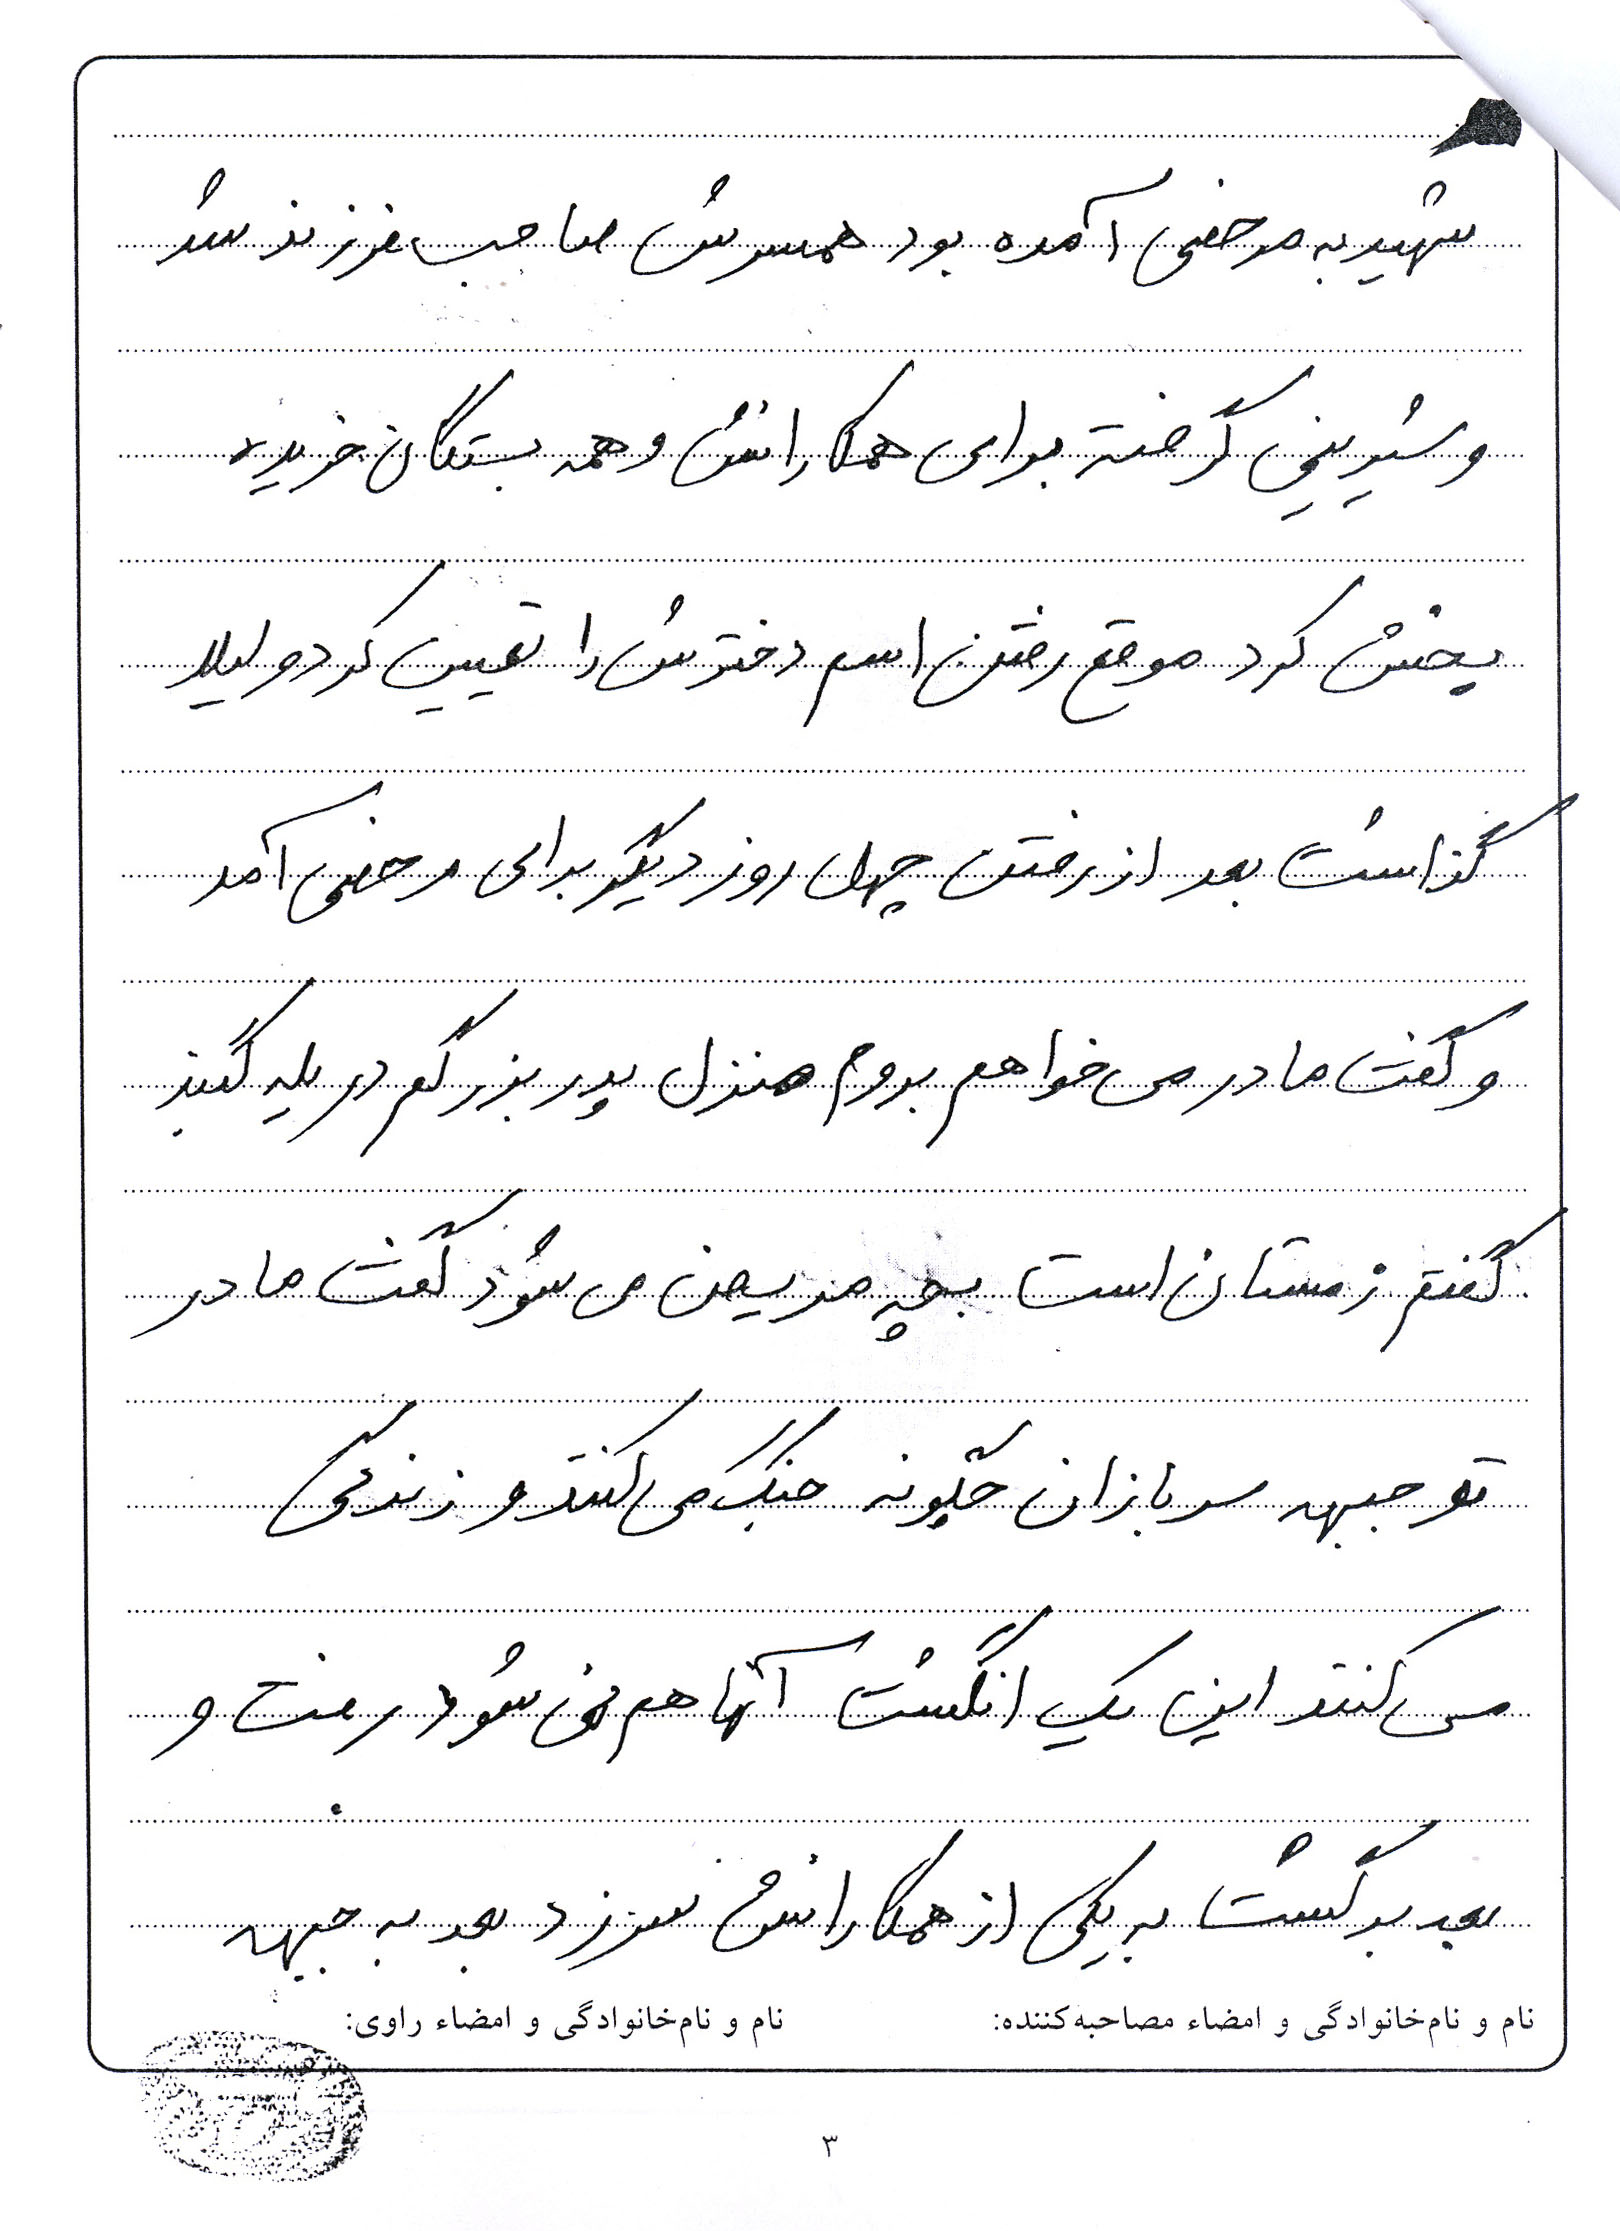 شهید به مرخصی آمده بود همسرش صاحب فرزند شد
و شیرینی گرفته برای همکارانش و همه بستگان خریده
پخش کرد موقع رفتن اسم دخترش را تعیین کرد و لیلا
گذاشت بعد از رفتن چهل روز دیگر برای مرخصی آمد
و گفت مادر می خواهم بروم منزل پدر بزرگم در یله گنبد
گفتم زمستان است بچه مریض می شود گفت مادر
تو جبهه سربازان چگونه جنگ می کنند و زندگی
می کنند این یک انگشت آنها هم نمی شود رفت و
بعد برگشت به یکی از همکارانش سر زد بعد به جبهه
نام و نام‌خانوادگی و امضاء مصاحبه‌کننده: نام و نام‌خانوادگی و امضاء راوی:
۳